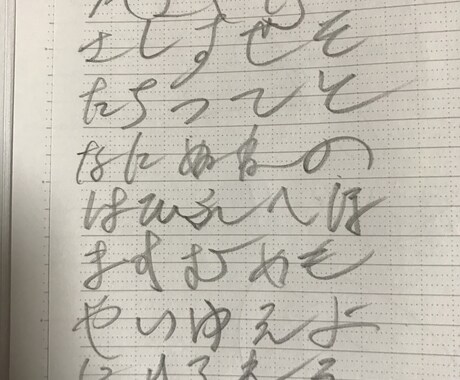 さしすせそ
たちつてと
なにぬねの
はひふへほ
まみむめも
やいゆえよ